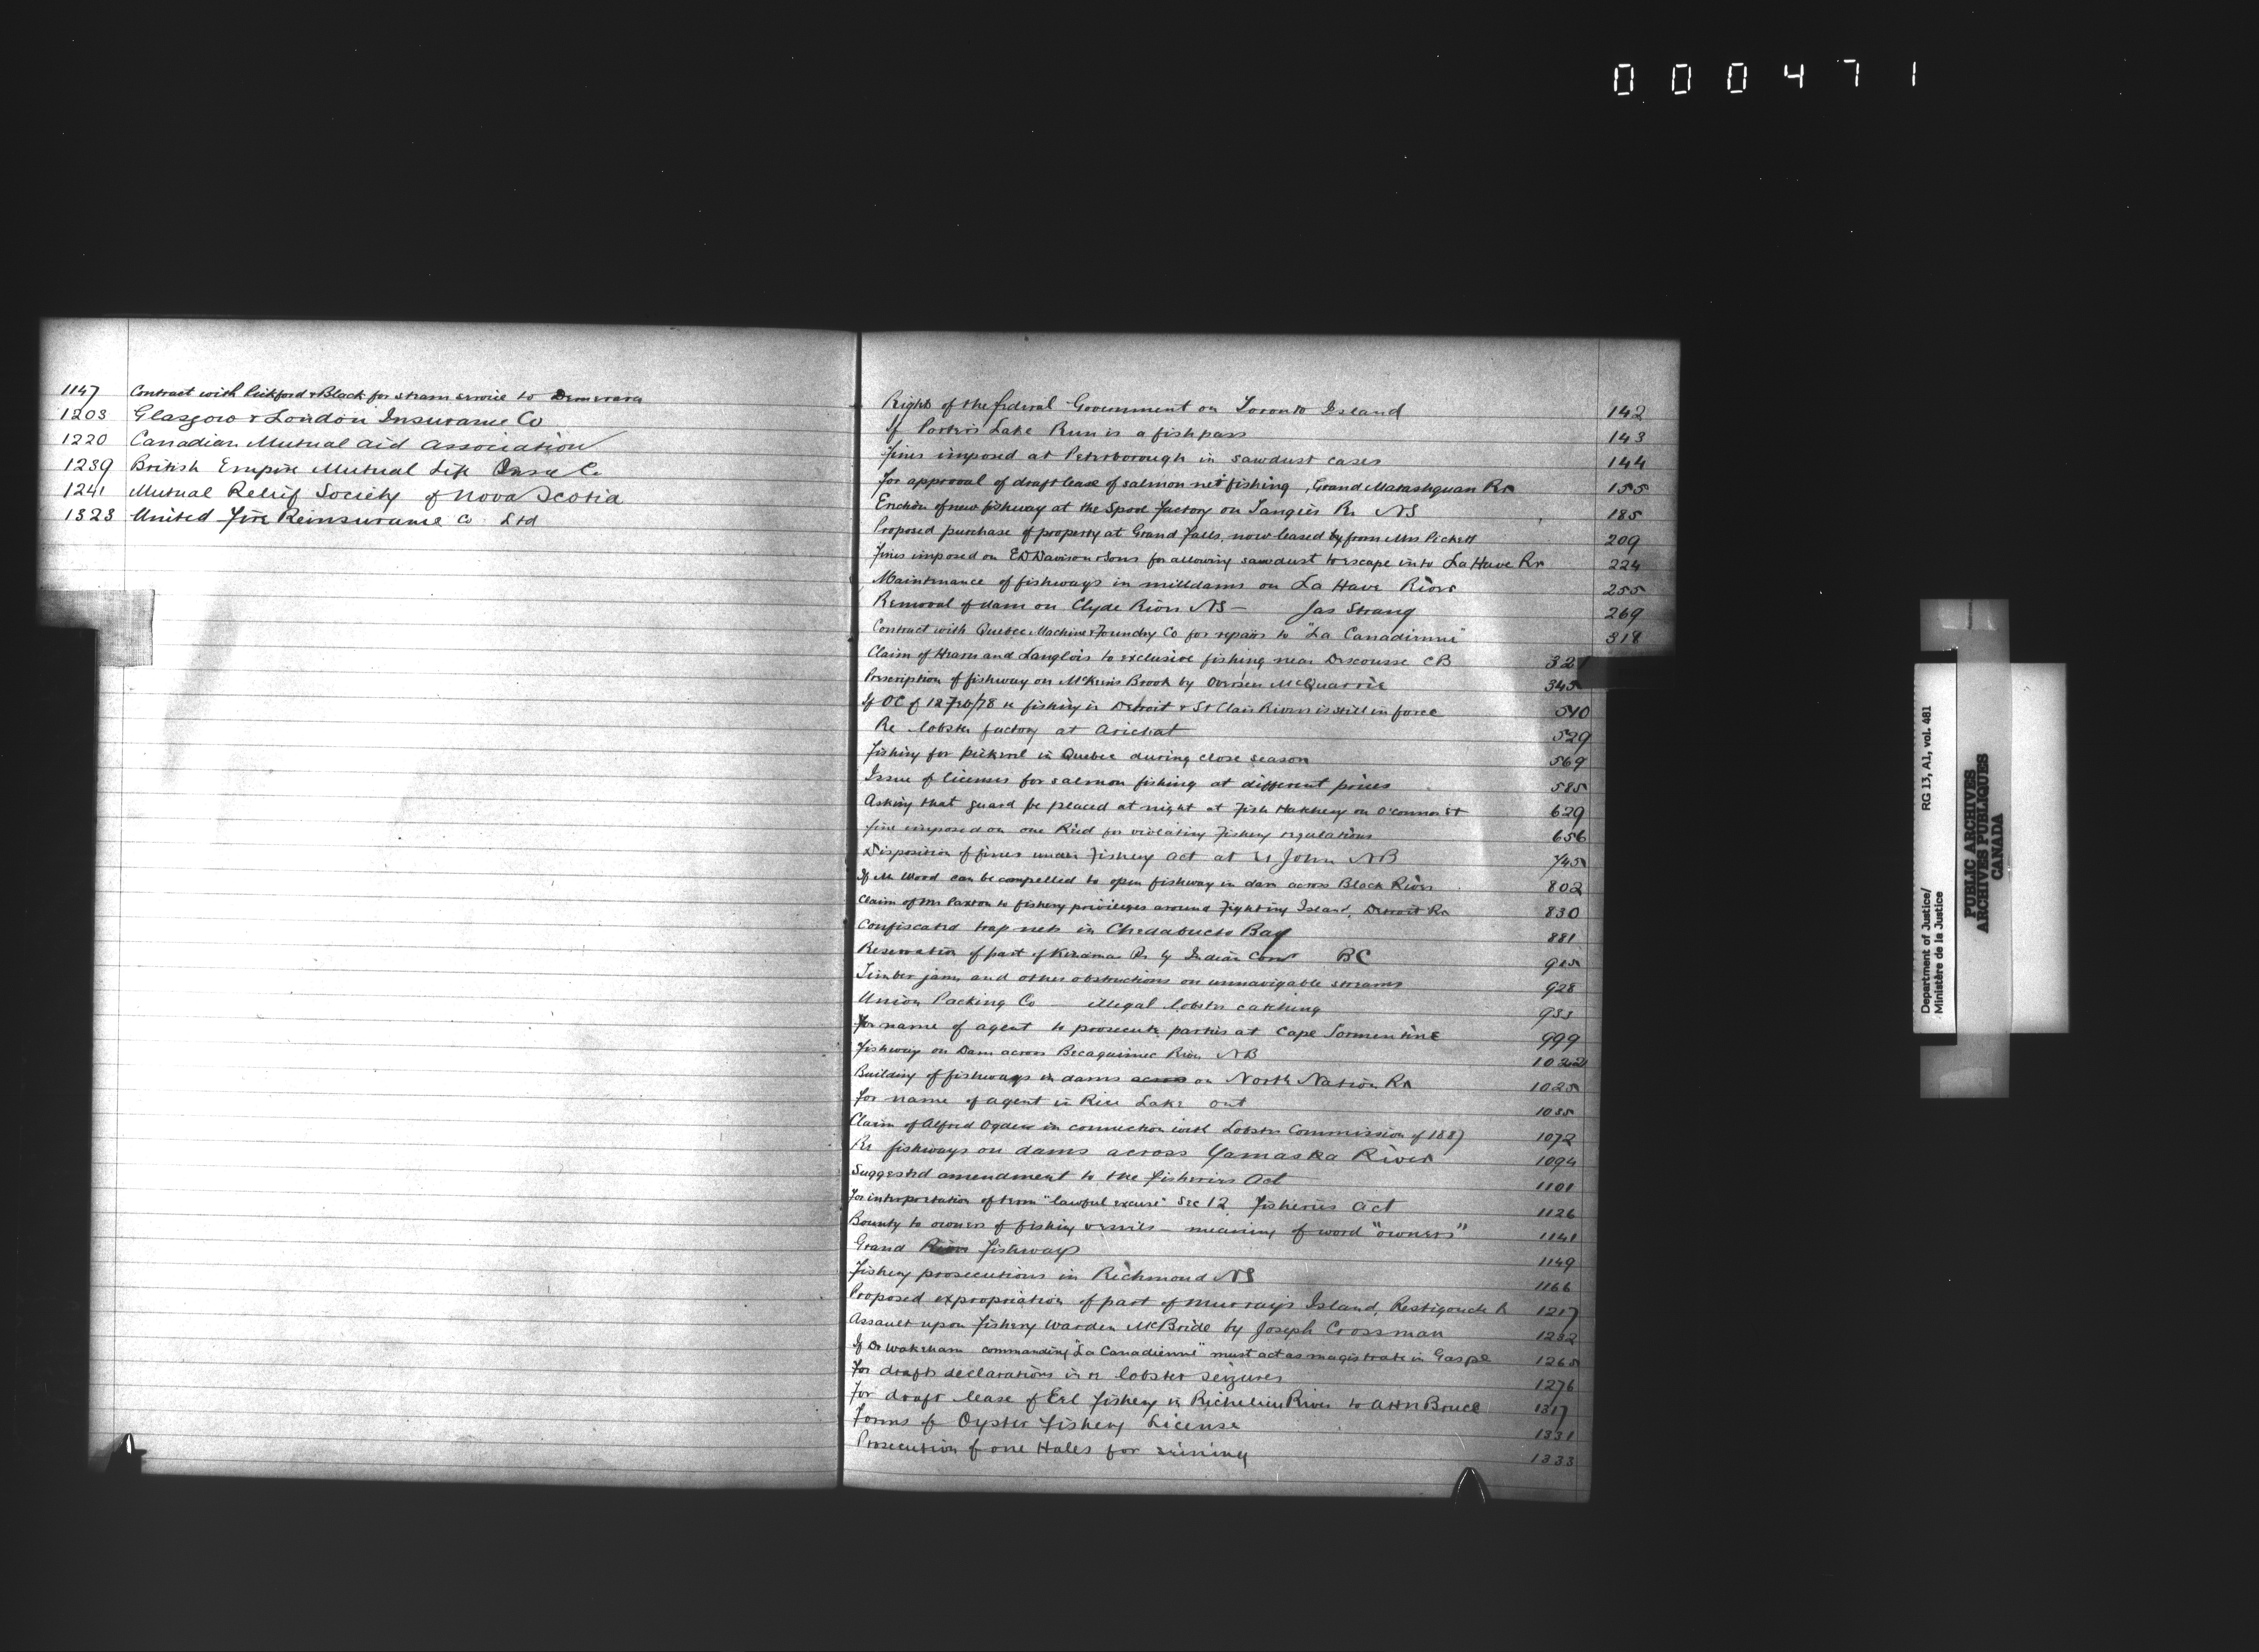 000471
1147 Contract with Pickford & Black for steam service to Demerara
1203 Glasgow & London Insurance Co
1220 Canadian Mutual Aid Association
1239 British Empire Mutual Life Assce Co
1241 Mutual Relief Society of Nova Scotia
1323 United Fire Reinsurance Co Ltd
Right of the federal Government on Toronto Island 142
If Porters Lake Run is a fishpass 143
Fines imposed at Peterborough in sawdust cases 144
For approval of draft lease of salmon net fishing, Grand Matashquan Rr 155
Erection of new fishway at the Spool Factory on Tangier Rr NS 185
Proposed purchase of property at Grand Falls, now leased by from Mrs Pickett 209
Fines imposed on E D Davison & Sons for allowing sawdust to escape into La Have Rr 224
Maintenance of fishways in milldams on La Have River 255
Removal of dam on Clyde River NS - Jas Strang 269
Contract with Quebec Machine & Foundry Co for repairs to "La Canadienne" 318
Claim of Hearn and Langlois to exclusive fishing near Descousse CB 321
Prescription of fishway on McKeens Brook by Overseer McQuarrie 345
If OC of 12 Feb/78 re fishing in Detroit & St Clair Rivers is still in force 510
Re lobster factory at Arichat 529
Fishing for pickerel in Quebec during close season 569
Issue of licenses for salmon fishing at different prices 585
Asking that guard be placed at night at Fish Hatchery on O'Connor St 629
Fine imposed on one Reid for violating Fishery regulations 656
Disposition of fines under Fishery Act at St John NB 745
If Mr Wood can be compelled to open fishway in dam across Black River 802
Claim of Mr Paxton to fishery privileges around Fighting Island, Detroit Rr 830
Confiscated trap nets in Chedabucto Bay 881
Reservation of part of Rr by Indian Comr BC 915
Timber jams and other obstructions on unnavigable streams 928
Union Packing Co - illegal lobster catching 955
For name of agent to prosecute parties at Cape Tormentine 999
Fishway on Dam across Becaguimec River NB 1022
Building of fishways in dams across on North Nation Rr 1025
For name of agent in Rice Lake Ont 1055
Claim of Alfred Ogden in connection with Lobster Commission of 1887 1072
Re fishways on dams across Yamaska River 1094
Suggested amendment to the Fisheries Act 1101
For interpretation of term "lawful excuse" Sec 12 Fisheries Act 1126
Bounty to owners of fishing vessels - meaning of word "owners" 1141
Grand River fishways 1149
Fishery prosecutions in Richmond NS 1166
Proposed expropriation of part of Murray's Island, Restigouche R 1217
Assault upon Fishery Warden McBride by Joseph Crossman 1232
If Dr Wakeham commanding "La Canadienne" must act as magistrate in Gaspe 1265
For draft declarations in re lobster seizures 1276
For draft lease of Eel Fishery in Richelieu River to A H N Bruce 1317
Forms of Oyster Fishery License 1331
Prosecution of one Hales for seining 1333
Department of Justice/ RG 13, A1, vol. 481
Ministère de la Justice
PUBLIC ARCHIVES
ARCHIVES PUBLIQUES
CANADA